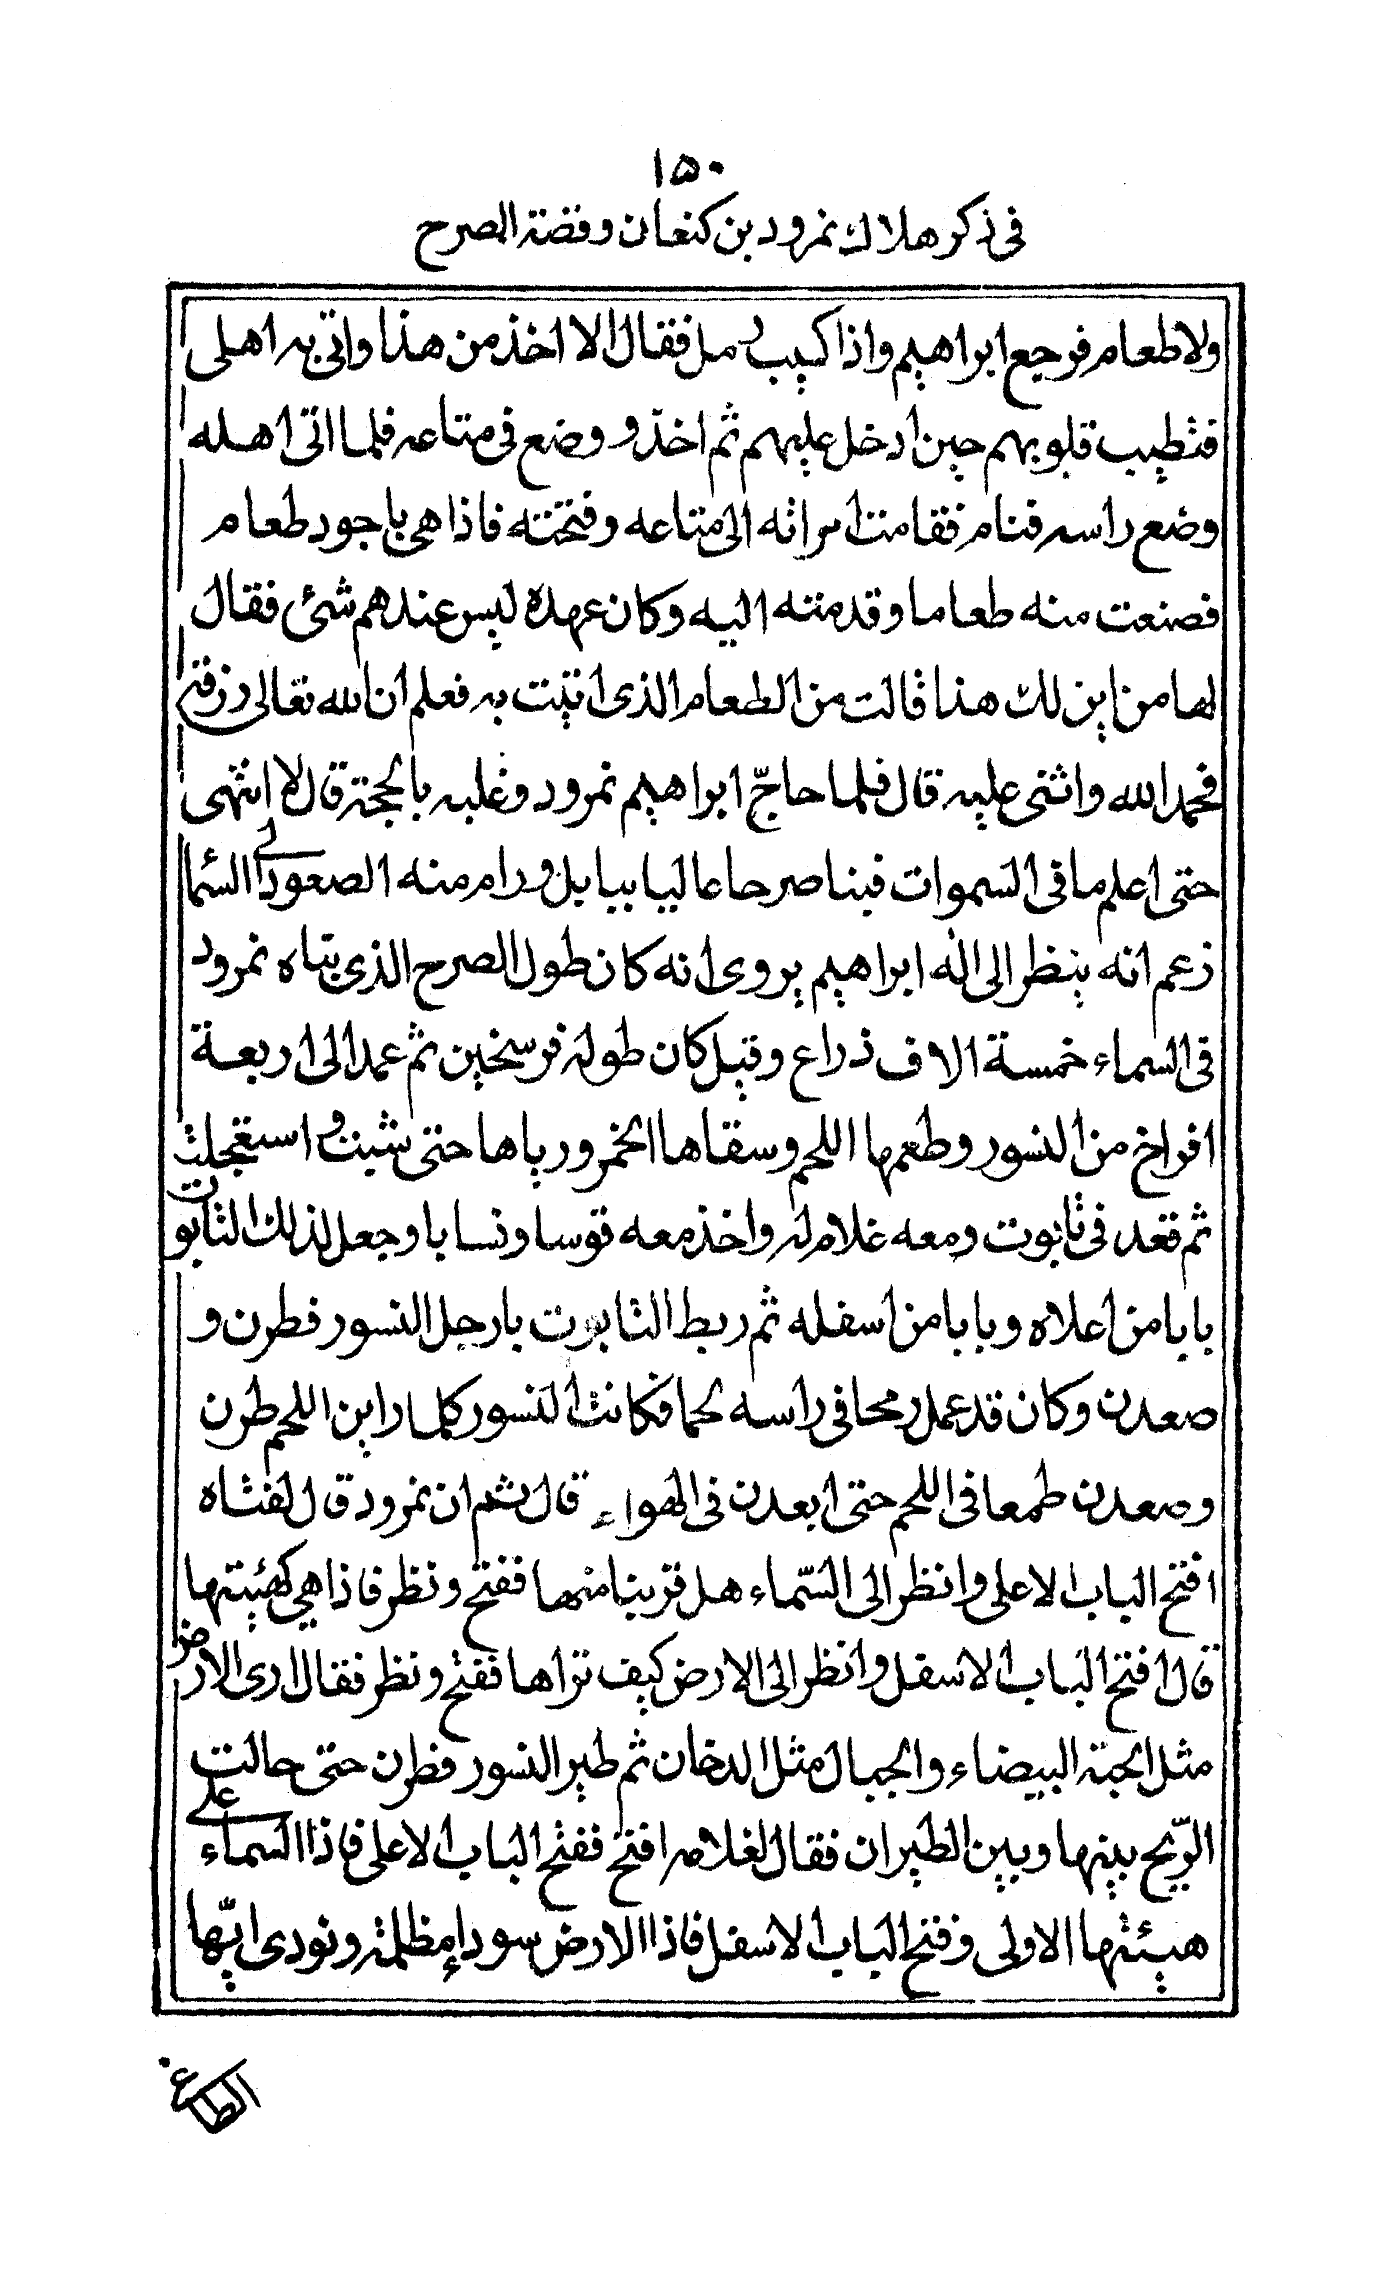 ۱۵۰
فى ذكر هلاك نمرود بن كنعان وقصة الصرح
ولا طعام فرجع ابراهيم واذا كثيب رمل فقال الا اخذ من هذا واتى به اهلى
فتطيب قلوبهم حين ادخل عليهم ثم اخذ ووضع فى متاعه فلما اتى اهله
وضع راسه فنام فقامت امراته الى متاعه وفتحته فاذا هى باجود طعام
فصنعت منه طعاما وقدمته اليه وكان عهده ليس عندهم شئ فقال
لها من اين لك هذا قالت من الطعام الذى اتيت به فعلم ان الله تعالى رزقه
فحمد الله واثنى عليه قال فلما حاجّ ابراهيم نمرود وغلبه بالحجة قال لا انتهى
حتى اعلم ما فى السموات فبنا صرحا عاليا ببابل ورام منه الصعود الى السما
زعم انه ينظر الى اله ابراهيم يروى انه كان طول الصرح الذى بناه نمرود
فى السماء خمسة الاف ذراع وقيل كان طوله فرسخين ثم عمد الى اربعة
افراخ من النسور وطعمها اللحم وسقاها الخمر ورباها حتى شبت واستعجلت
ثم قعد فى تابوت ومعه غلام له واخذ معه قوسا ونسابا وجعل لذلك التابوت
بابا من اعلاه وبابا من اسفله ثم ربط التابوت بارجل النسور فطرن و
صعدن وكان قد عمل رمحا فى راسه لحما فكانت النسور كلما راين اللحم طرن
وصعدن طمعا فى اللحم حتى ابعدن فى الهواء قال ثم ان نمرود قال لفتاه
افتح الباب الاعلى وانظر الى السّماء هل قربنا منها ففتح ونظر فاذا هي كهيئتها
قال افتح الباب الاسفل وانظر الى الارض كيف تراها ففتح ونظر فقال ارى الارض
مثل الجبة البيضاء والجبال مثل الدخان ثم طير النسور فطرن حتى حالت
الرّيح بينها وبين الطيران فقال لغلامه افتح ففتح الباب الاعلى فاذا السماء على
هيئتها الاولى وفتح الباب الاسفل فاذا الارض سوداء مظلمة ونودى ايّها
الطاغ